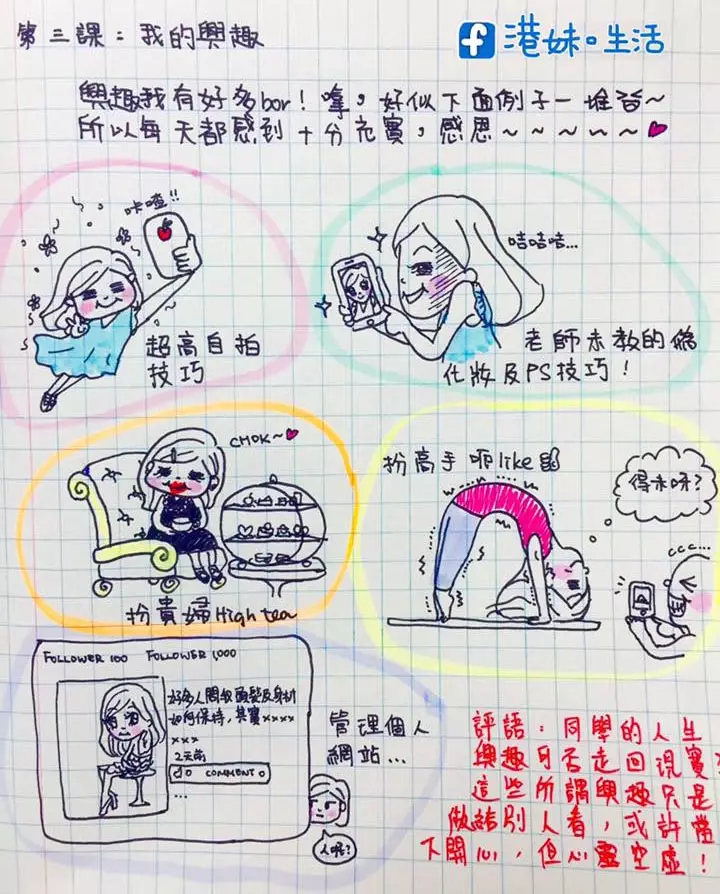 第三課：我的興趣
港妹。生活
興趣我有好多bor！嗱，好似下面例子一堆咨~
所以每天都感到十分充實，感恩~~~~~
咔喳!!
超高自拍
技巧
咭咭咭...
老師未教的偽
化妝及PS技巧！
CHOK~
扮貴婦High tea
扮高手呃like
得未呀?
CCC...
FOLLOWER 100 FOLLOWER 1,000
好多人問我頭髮及身材
如何保持，其實xxxx
xxx
2天前
0 COMMENT 0
...
管理個人
網站...
人呢?
評語：同學的人生
興趣可否走回現實?
這些所謂興趣只是
做給別人看，或許當
下開心，但心靈空虛！